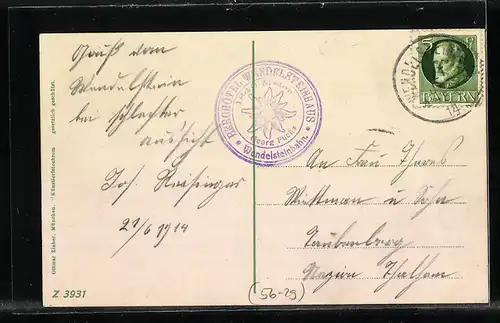 Gruß vom
Wendelstein
bei schlechter
Aussicht
Jos. Reisinger
21/6 1914
BERGHOTEL WENDELSTEINHAUS
Georg Fuchs
* Wendelsteinbahn. *
5
BAYERN
WENDEL
An Frau Theres
Wittman u Sohn
Taubenberg
Ottmar Zieher, München. "Künstlerlichtdruck gesetzlich geschützt.
Z 3931
(56-29)